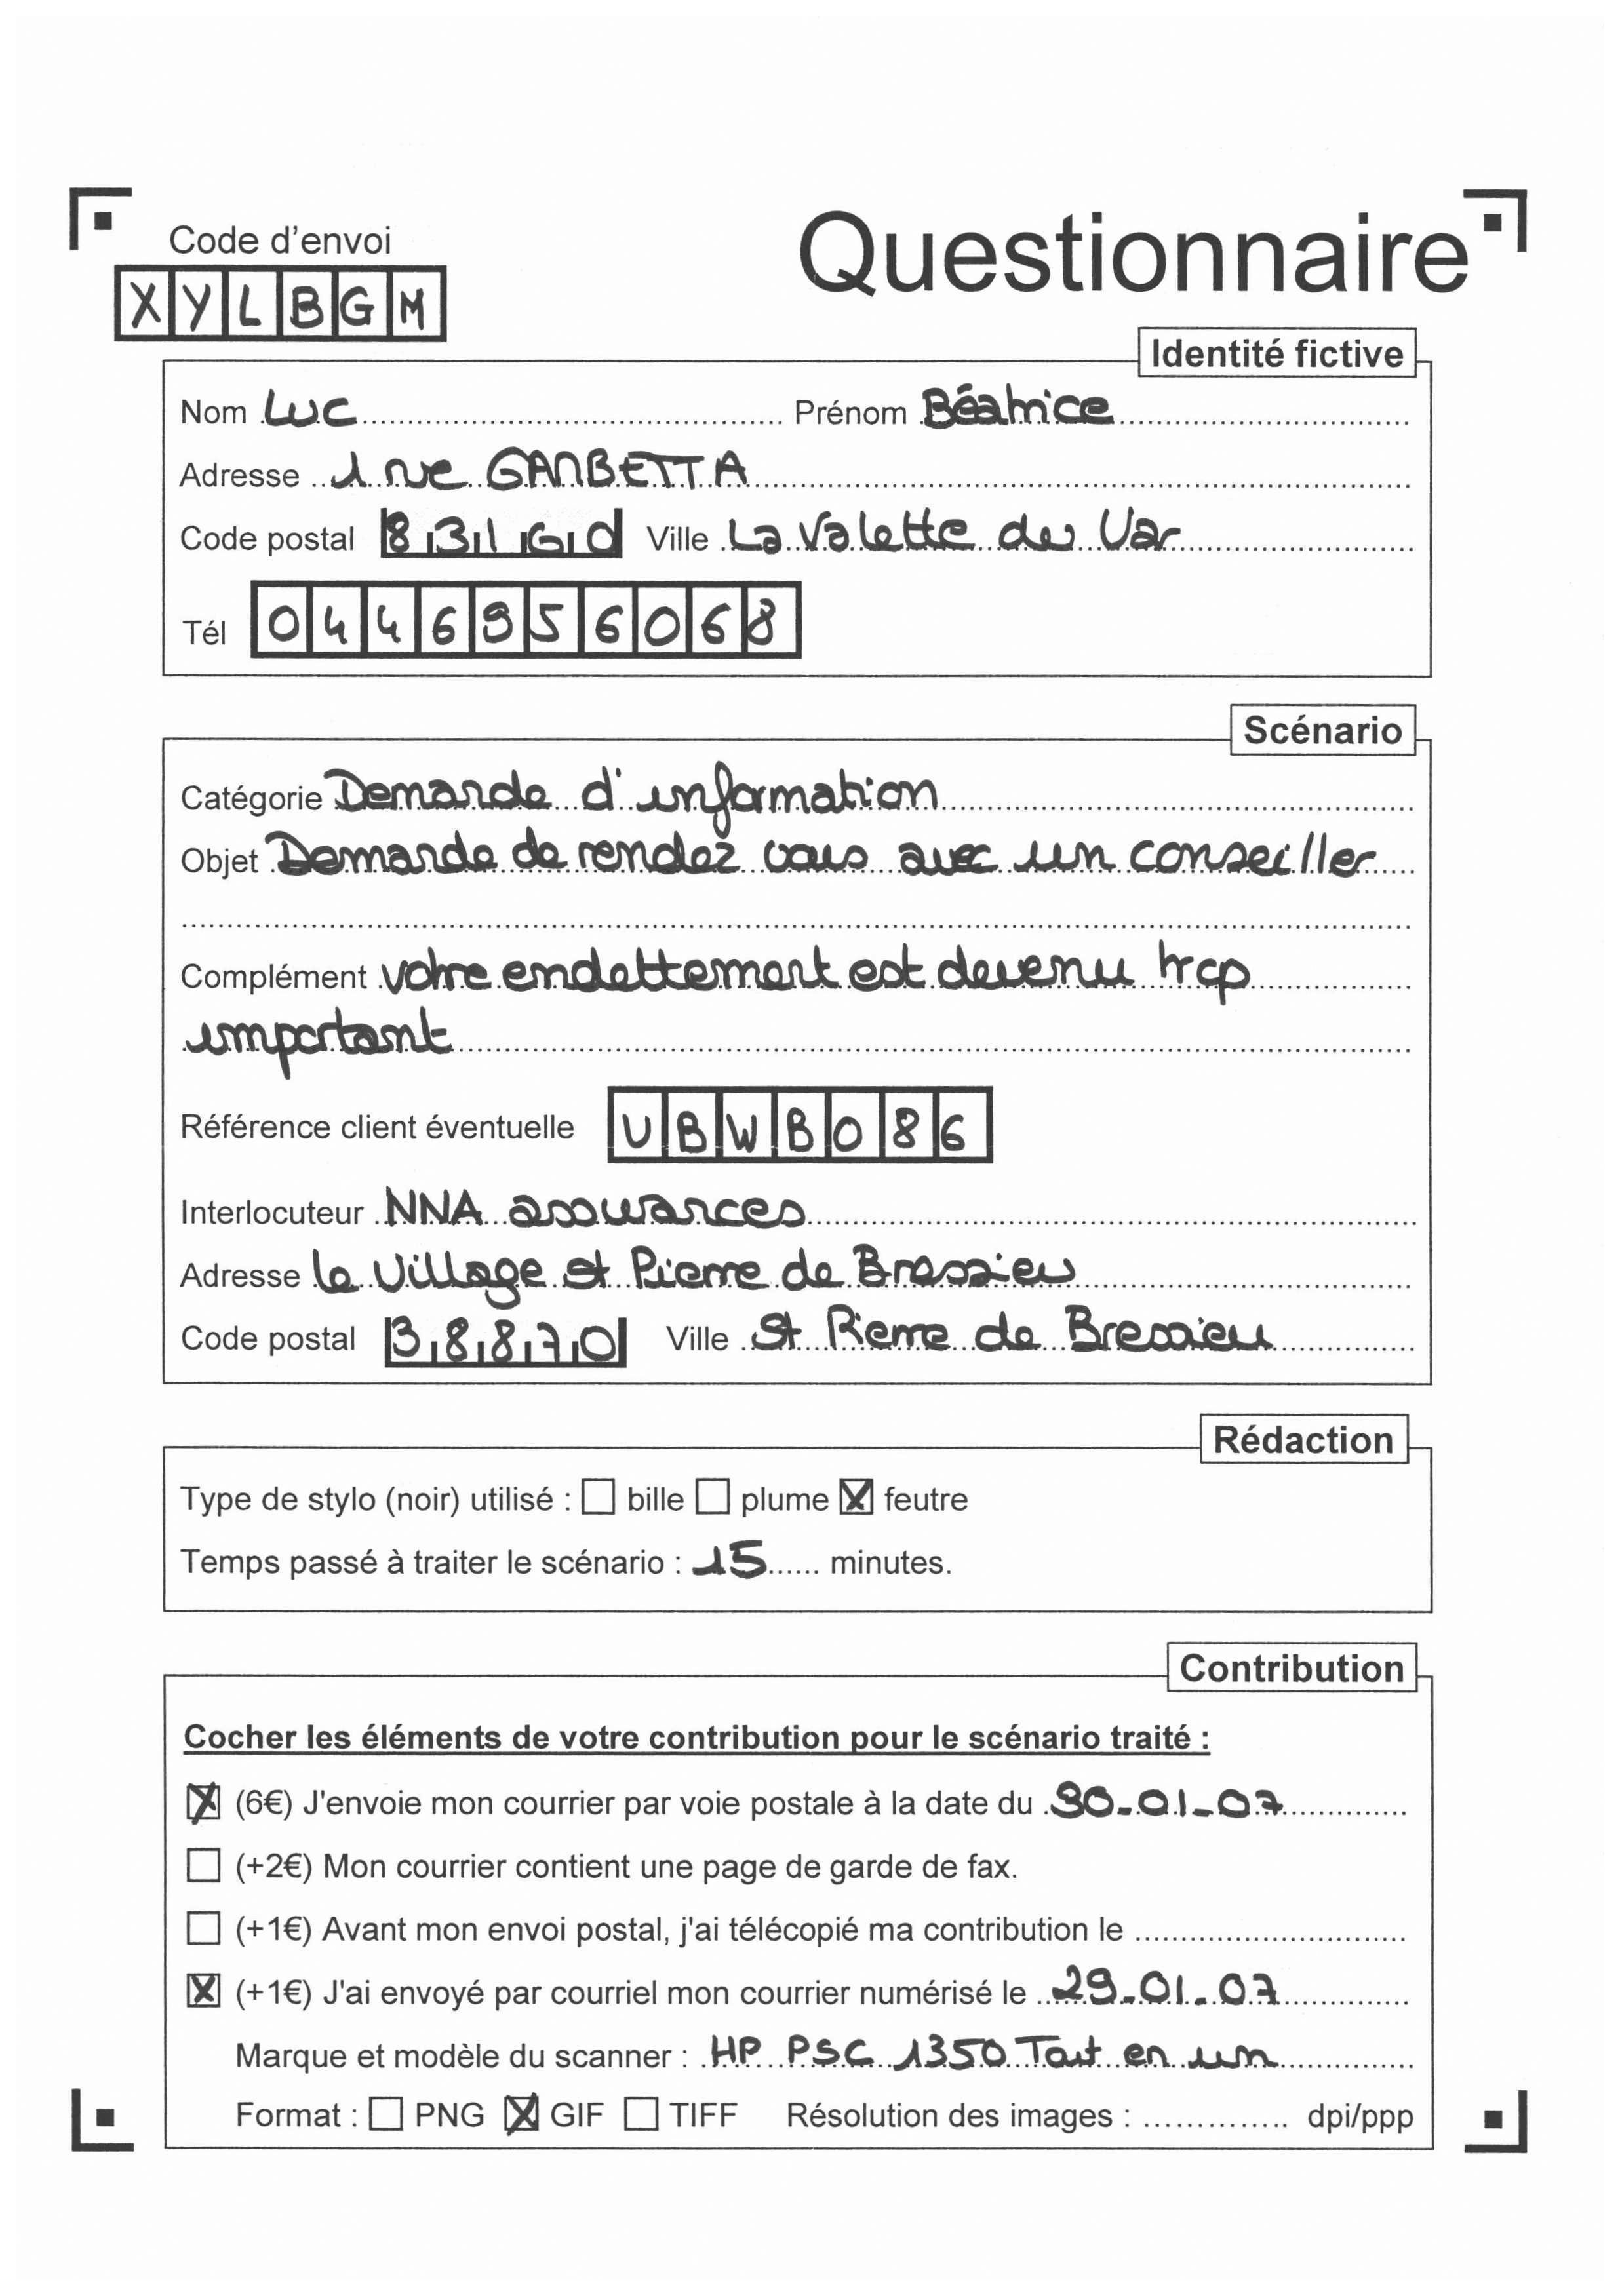 Code d'envoi
XYLBGM
Questionnaire
Identité fictive
Nom Luc Prénom Béatrice
Adresse 1 rue GAMBETTA
Code postal 83160 Ville La Valette du Var
Tél 0446956068
Scénario
Catégorie Demande d'information
Objet Demande de rendez vous avec un conseiller
Complément votre endettement est devenu trop
important
Référence client éventuelle UBWB086
Interlocuteur NNA assurances
Adresse le Village st Pierre de Bressieu
Code postal 38870 Ville St Pierre de Bressieu
Rédaction
Type de stylo (noir) utilisé : ☐ bille ☐ plume ☒ feutre
Temps passé à traiter le scénario : 15 minutes.
Contribution
Cocher les éléments de votre contribution pour le scénario traité :
☒ (6€) J'envoie mon courrier par voie postale à la date du 30-01-07
☐ (+2€) Mon courrier contient une page de garde de fax.
☐ (+1€) Avant mon envoi postal, j'ai télécopié ma contribution le
☒ (+1€) J'ai envoyé par courriel mon courrier numérisé le 29-01-07
Marque et modèle du scanner : HP PSC 1350 Tout en un
Format : ☐ PNG ☒ GIF ☐ TIFF Résolution des images : .............. dpi/ppp